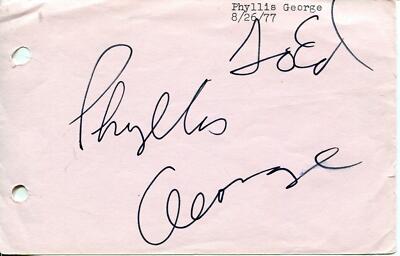 Phyllis George
8/26/77
To Ed
Phyllis
George